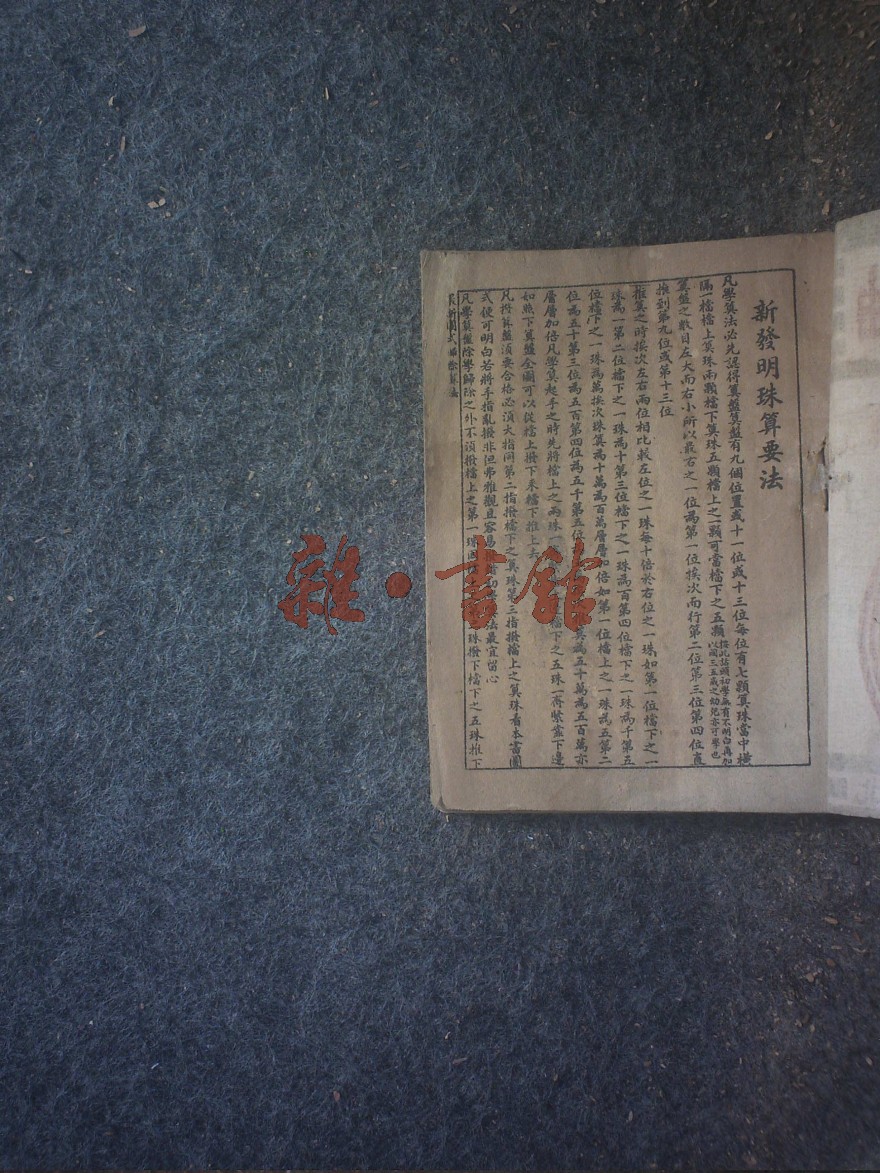 新發明珠算要法
凡學算法必先認得算盤算盤有九個位置或十一位或十三位每位有七顆算珠當中橫
隔一檔檔上算珠兩顆檔下算珠五顆檔上之一顆可當檔下之五顆按此法頭初學無有不明白再加以圖三五歲之幼兒亦可學也
算盤之數目左大而右小所以最右之一位為第一位挨次而行第二位第三位第四位直
推到第九位或第十三位
推算之時挨次左右兩位相比較左位之一珠每十倍於右位之一珠如第一位檔下之一
珠為一第二位檔下之一珠為十第三位檔下之一珠為百第四位檔下之一珠為千第五
位檔下之一珠為萬挨次珠算為十萬為百萬層層加倍如第一位檔上之一珠為五第二
位為五十第三位為五百第四位為五千第五位 其為五十萬為五百萬亦
層層加倍凡學算起手之時先將檔上之兩珠 檔下之五珠一齊緊靠下邊
如照下算盤全圖可以從檔上撥下來檔下推上去
凡撥算盤須要合格必須大指同第二指撥檔下之算珠第三指撥檔上之算珠看本書圖
式便可明白若將手指亂撥非但弗雅觀且容易 法最宜留心
凡學算盤除學歸除之外不須撥檔上之第一珠 珠撥下檔下之五珠推下
新圖式 歸除算法
雜·書館